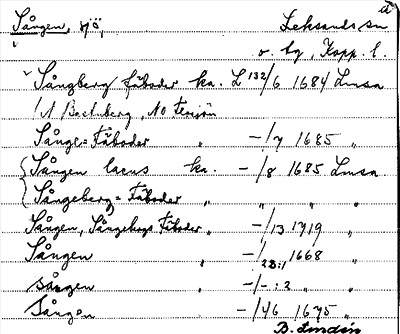 a
Sången, sjö, Leksands sn
o. bg, Kopp. l.
Sångberg fäboder ka. L 132/6 1684 Lmsa
/A Bechsberg, NO Tensjön
Sångc = Fäboder " -/7 1685 "
Sången lacus ka. -/8 1685 Lmsa
Sångeberg = Fäboder " " " "
Sången, Sångebergs Fäboder " -/13 1719 "
Sången " -/28:1 1668 "
Sången " -/- :2 "
Sången " -/46 1675 "
B. Lindén